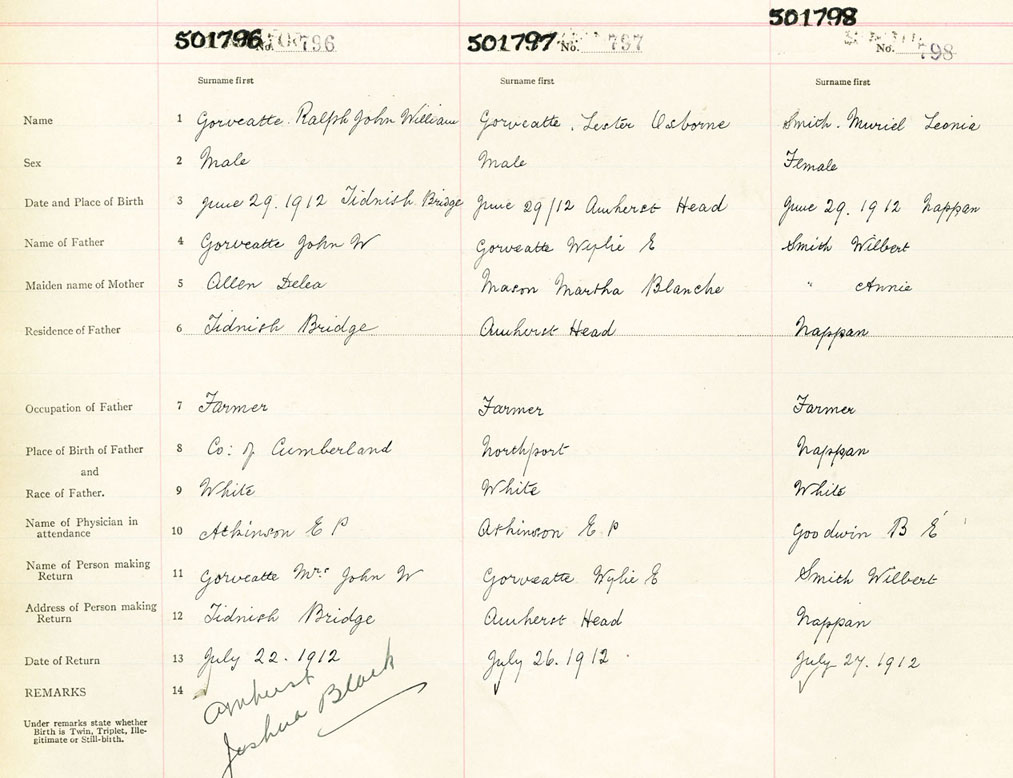 501796 501797 501798
No. 796 No. 797 No. 798
Surname first Surname first Surname first
Name 1 Gorveatte. Ralph John William Gorveatte. Lester Osborne Smith. Muriel Leonia
Sex 2 Male Male Female
Date and Place of Birth 3 June 29. 1912 Tidnish Bridge June 29/12 Amherst Head June 29. 1912 Nappan
Name of Father 4 Gorveatte John W Gorveatte Wylie E Smith Wilbert
Maiden name of Mother 5 Allen Delea Mason Martha Blanche " Annie
Residence of Father 6 Tidnish Bridge Amherst Head Nappan
Occupation of Father 7 Farmer Farmer Farmer
Place of Birth of Father 8 Co: of Cumberland Northport Nappan
and
Race of Father. 9 White White White
Name of Physician in
attendance 10 Atkinson E P Atkinson E. P Goodwin B E
Name of Person making
Return 11 Gorveatte Mrs John W Gorveatte Wylie E Smith Wilbert
Address of Person making
Return 12 Tidnish Bridge Amherst Head Nappan
Date of Return 13 July 22. 1912 July 26. 1912 July 27. 1912
REMARKS 14 Amherst
Joshua Black
Under remarks state whether
Birth is Twin, Triplet, Ille-
gitimate or Still-birth.